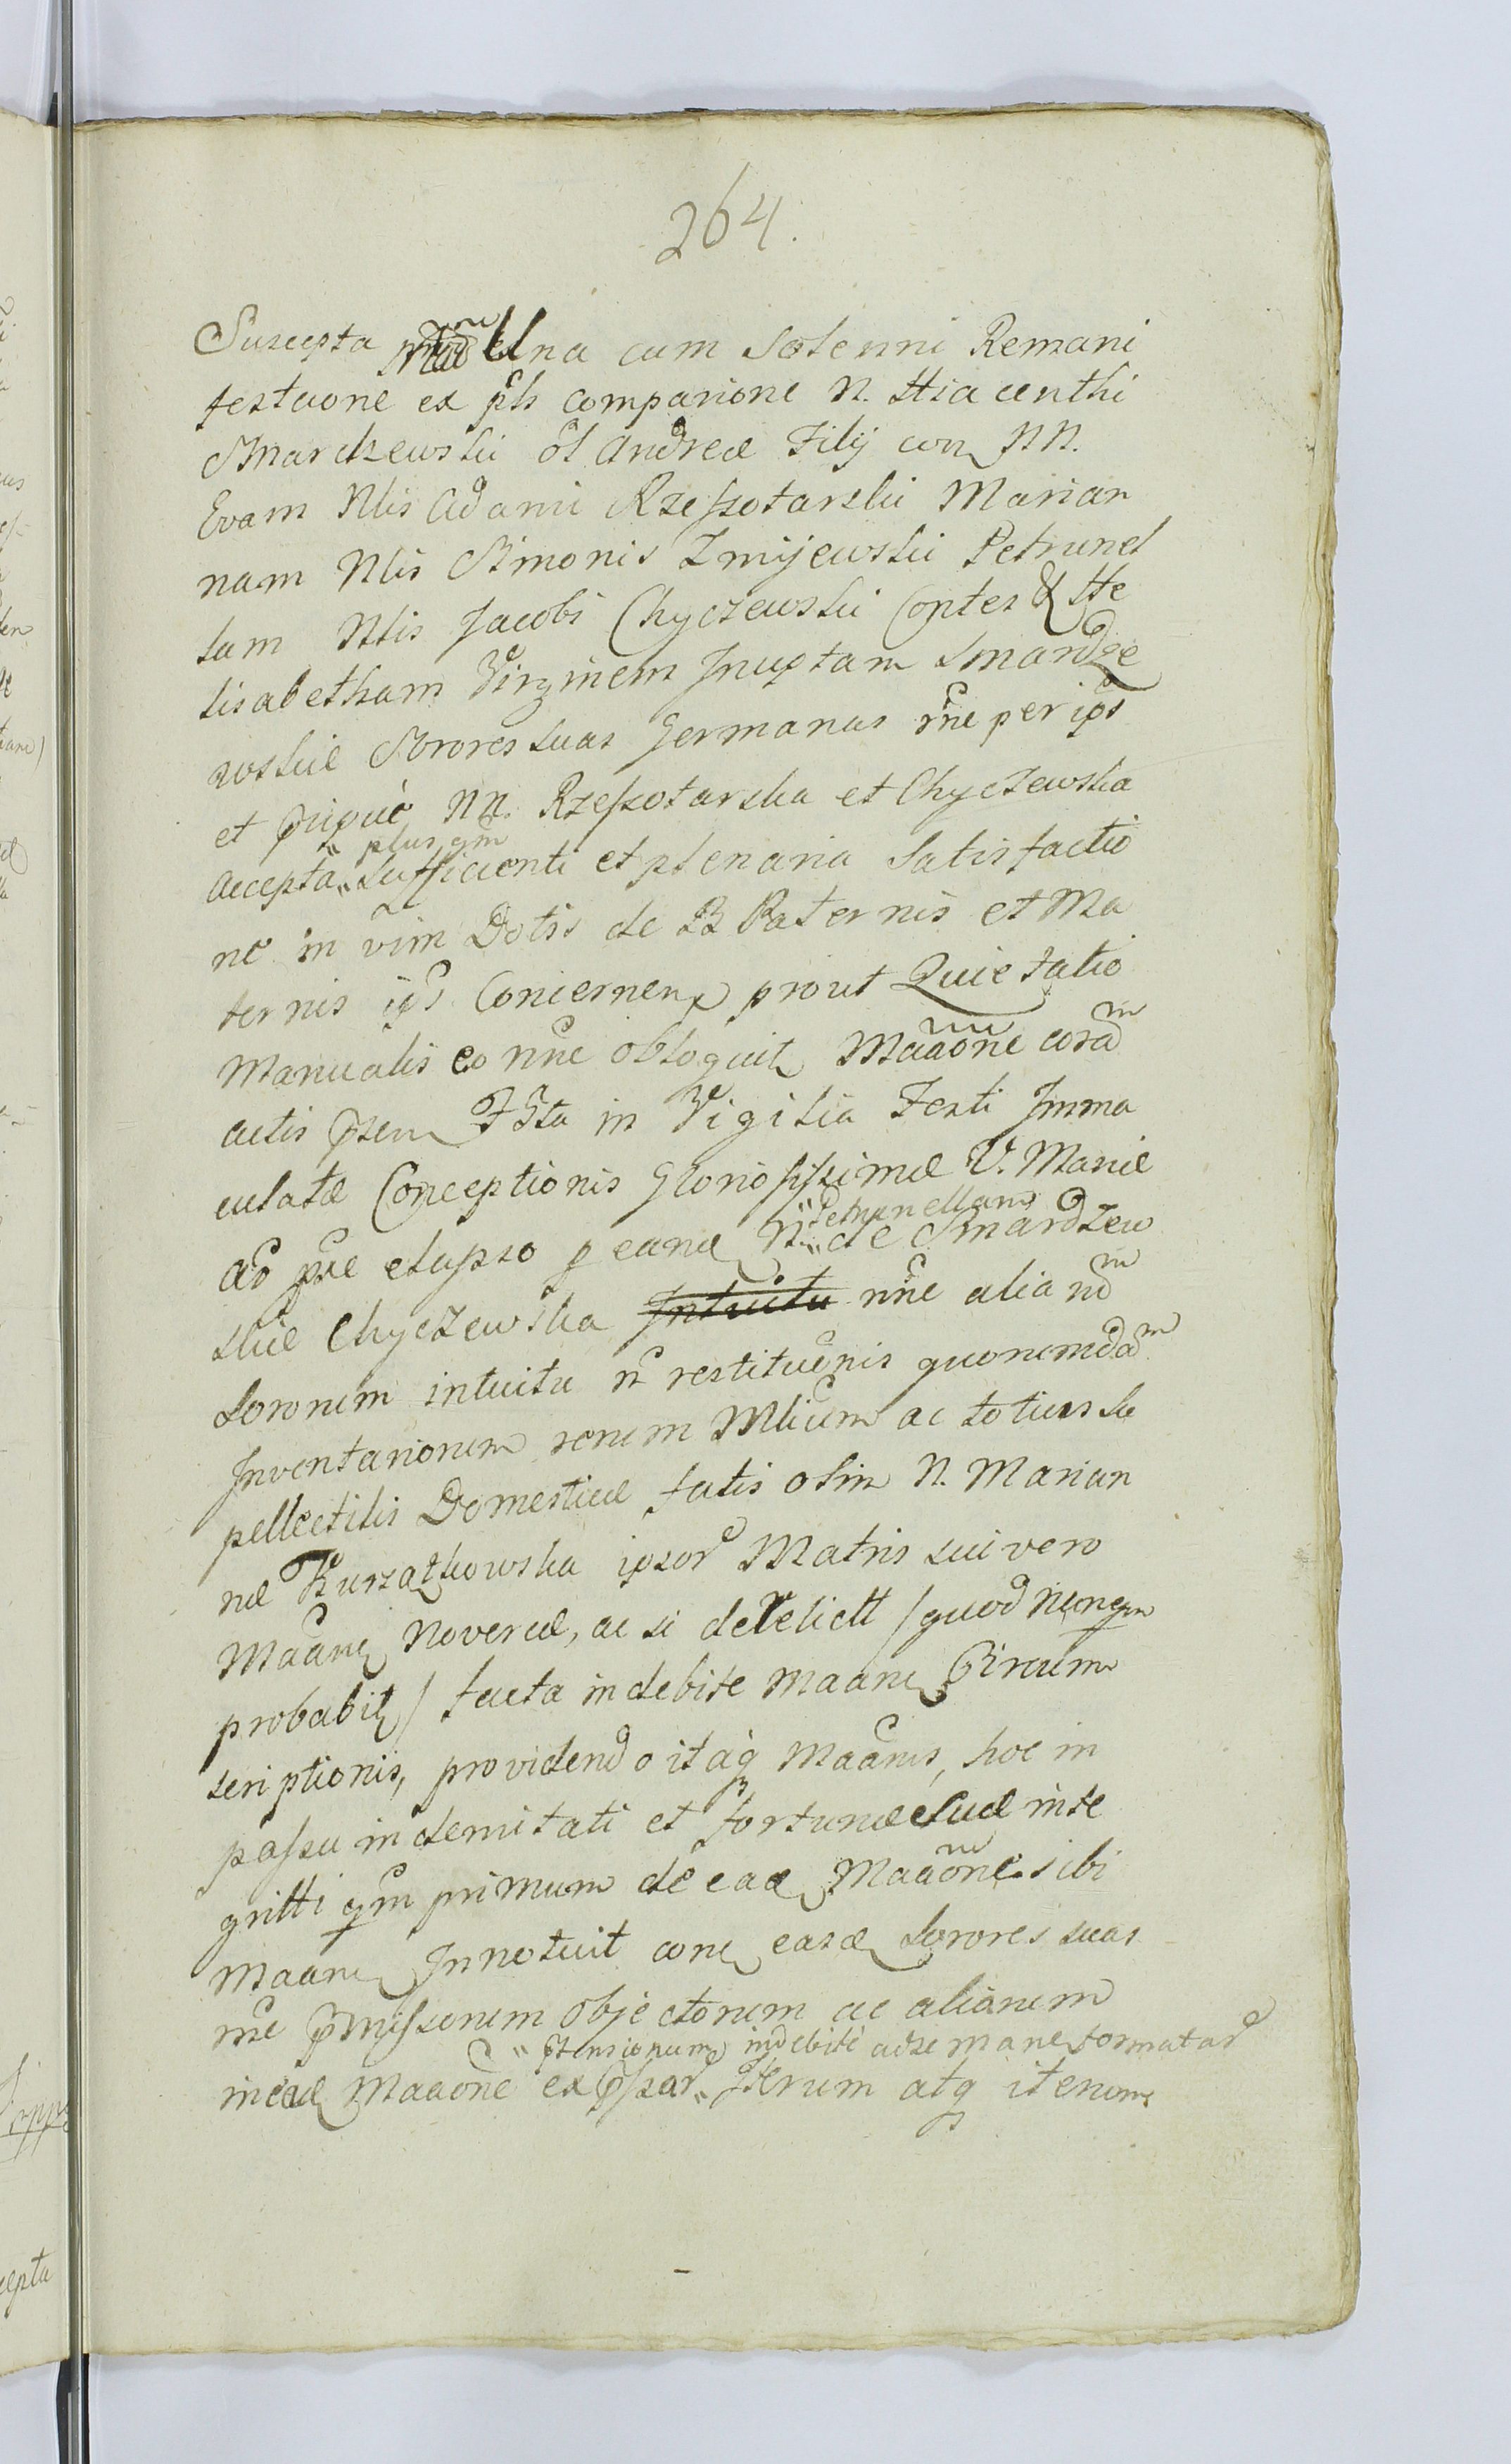 264.
Suscepta Una cum Solenni Remani
festaone ex pħ comparione N. Hiacenthi
Smardzewski ol Andreæ Filij con NN.
Evam Nlis Adami Rzeszotarski Marian
nam Nlis Simonis Zmijewski Petrunel
lam Nlis Jacobi Chyczewski Contes & He
lisabetham Virginem Inuptam Smardze
wskie Sorores suas Germanas rñe per ips
et NN. Rzeszotarska et Chyczewska
plus qm
Accepta Sufficienti et plenaria Satisfactio
ne in vim Dotis de BB Paternis et Ma
ternis ips Concernen prout Quietatio
Manualis eo nñe obloquit Maãone corã
actis Pten Ffta in Vigilia Festi Imma
culatæ Conceptionis Gloriosissimæ V. Mariæ
Petrunellam
Aõ pñe elapso p eand N. de Smardzew
skie Chyczewska Intuitu nñe aliarũ
Sororum intuitu ñ restituõnis quorumdã
Inventariorum rerum Mlium ac totius su
pellectilis Domesticæ fatis olim N. Marian
næ Kurzątkowska ipsor Matris sui vero
Maãni Novercæ, ac si derelictt / quod nunqm
probabit / facta indebite Maani Circum
scriptionis, providendo itaq Maãnis, hoc in
passu indemnitati et fortunæ suæ inte
gritti qm primum de ead Maãone sibi
Maani Innotuit con easd Sorores suas
rñe Pmissorum objectorum ac aliarum
Ptensionum indebite adse mane formatar
in ead Maãone expssar Iterum atq iterum